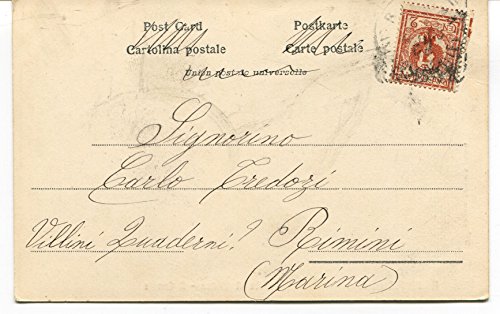 Post Card Postkarte
Cartolina postale Carte postale
Union postale universelle
Signorino
Carlo Tredozi
Villini Quaderni? Rimini
(Marina)